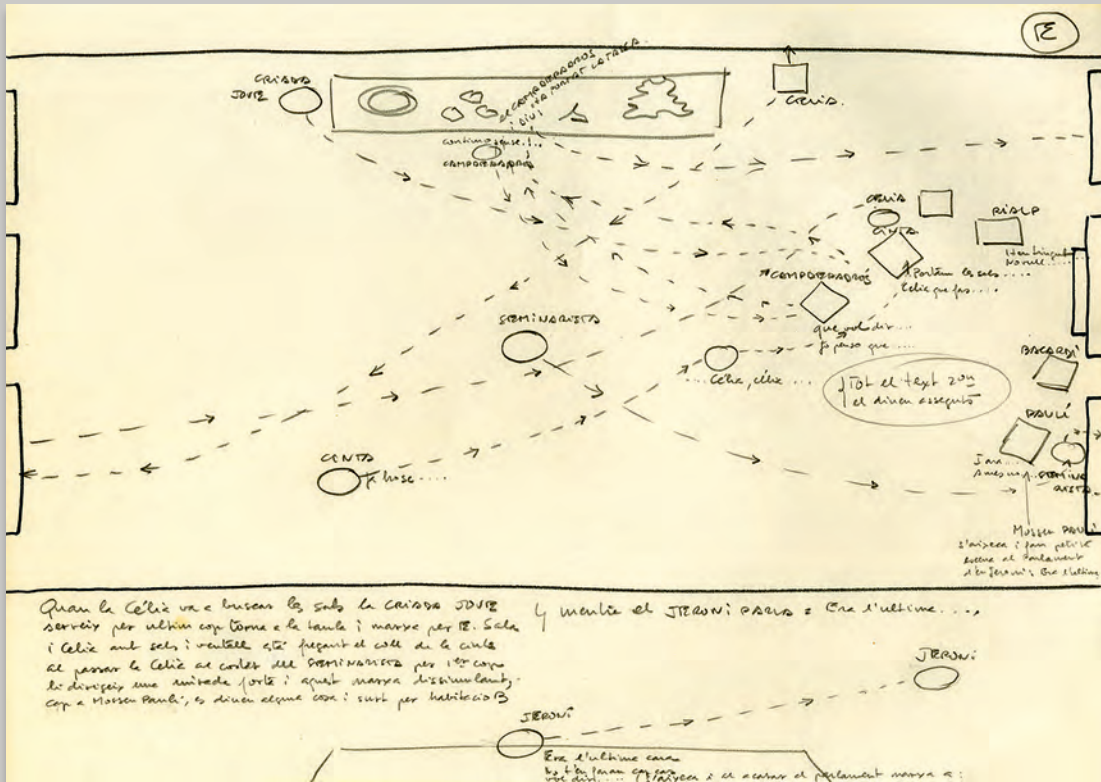 E
CRIADA
JOVE
CAMPDERRÓS
HA PORTAT LA TAULA.
I DIU
CAMPDERRÓS
CELIA.
CELIA
CINTA
RIALP
Portàm les sals ....
Celia que fas ....
CAMPDERRÓS
que vol dir ...
Jo penso que ....
SEMINARISTA
.... Cèlia, cèlia ....
Tot el text 2on
el diuen asseguts
BACARDÍ
PAULÍ
SEMINA
RISTA
CINTA
Ja ho se ....
Mossen PAULÍ
s'aixeca i fan petita
escena al Parlament
d'en Jeroni: Era l'ultim
Quan la Cèlia va a buscar les sals la CRIADA JOVE
serveix per ultim cop torna a la taula i marxa per E.
i Celia amb sals i ventall està fregant el coll de la cinta
al passar la Celia al costat del SEMINARISTA per 1er cop
li dirigeix una mirada forta i aquest marxa dissimulant,
cap a Mossen Paulí, es diuen alguna cosa i surt per habitacio B
mentre el JERONI PARLA = Era l'ultime ....
JERONI
JERONI
Era l'ultime
s'aixeca i al acabar el parlament marxa a: